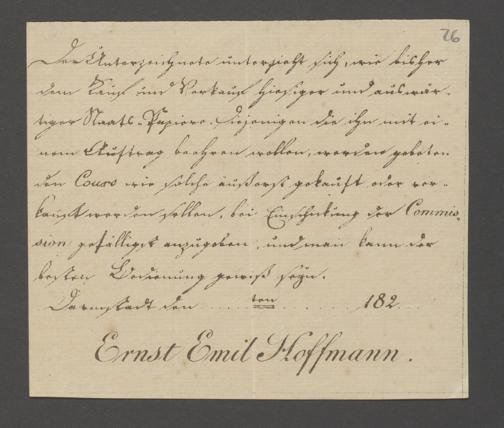 26
Der Unterzeichnete unterzieht sich, wie bisher
dem Kauf und Verkauf hiesiger und auswär-
tiger Staats-Papiere. Diejenigen die ihn mit ei-
nem Auftrag beehren wollen, werden gebeten
den Cours wie solche äußerst gekauft oder ver-
kauft werden sollen, bei Einschickung der Commis-
sion gefälligst anzugeben, und man kann der
besten Bedienung gewiß seyn.
Darmstadt den ten 182
Ernst Emil Hoffmann.